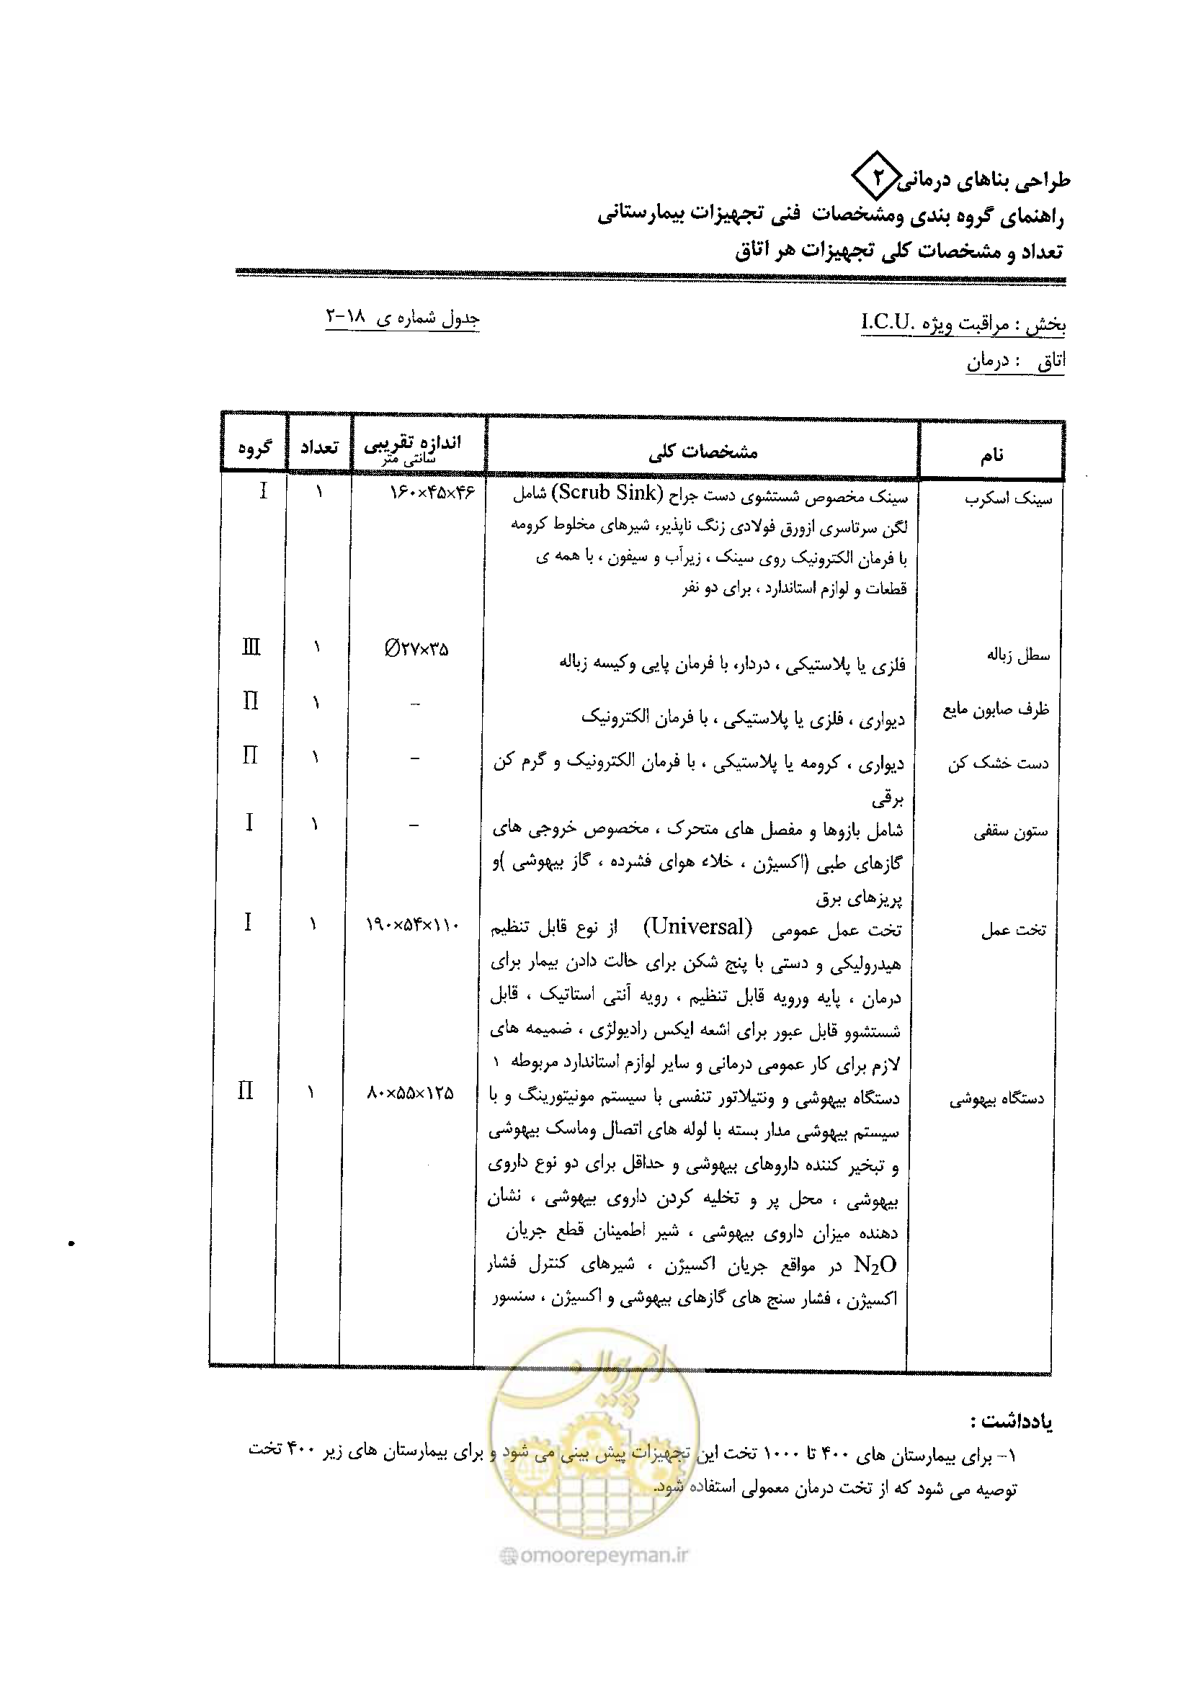 طراحی بناهای درمانی ۲
راهنمای گروه بندی ومشخصات فنی تجهیزات بیمارستانی
تعداد و مشخصات کلی تجهیزات هر اتاق
بخش : مراقبت ویژه I.C.U.
جدول شماره ی ۱۸-۲
اتاق : درمان
نام مشخصات کلی اندازه تقریبی تعداد گروه
سانتی متر
سینک اسکرب سینک مخصوص شستشوی دست جراح (Scrub Sink) شامل ۱۶۰×۴۵×۴۶ ۱ I
لگن سرتاسری ازورق فولادی زنگ ناپذیر، شیرهای مخلوط کرومه
با فرمان الکترونیک روی سینک ، زیرآب و سیفون ، با همه ی
قطعات و لوازم استاندارد ، برای دو نفر
سطل زباله فلزی یا پلاستیکی ، دردار، با فرمان پایی وکیسه زباله Ø۲۷×۳۵ ۱ III
ظرف صابون مایع دیواری ، فلزی یا پلاستیکی ، با فرمان الکترونیک – ۱ II
دست خشک کن دیواری ، کرومه یا پلاستیکی ، با فرمان الکترونیک و گرم کن – ۱ II
برقی
ستون سقفی شامل بازوها و مفصل های متحرک ، مخصوص خروجی های – ۱ I
گازهای طبی (اکسیژن ، خلاء هوای فشرده ، گاز بیهوشی )و
پریزهای برق
تخت عمل تخت عمل عمومی (Universal) از نوع قابل تنظیم ۱۹۰×۵۴×۱۱۰ ۱ I
هیدرولیکی و دستی با پنج شکن برای حالت دادن بیمار برای
درمان ، پایه ورویه قابل تنظیم ، رویه آنتی استاتیک ، قابل
شستشوو قابل عبور برای اشعه ایکس رادیولژی ، ضمیمه های
لازم برای کار عمومی درمانی و سایر لوازم استاندارد مربوطه ۱
دستگاه بیهوشی دستگاه بیهوشی و ونتیلاتور تنفسی با سیستم مونیتورینگ و با ۸۰×۵۵×۱۲۵ ۱ II
سیستم بیهوشی مدار بسته با لوله های اتصال وماسک بیهوشی
و تبخیر کننده داروهای بیهوشی و حداقل برای دو نوع داروی
بیهوشی ، محل پر و تخلیه کردن داروی بیهوشی ، نشان
دهنده میزان داروی بیهوشی ، شیر اطمینان قطع جریان
N2O در مواقع جریان اکسیژن ، شیرهای کنترل فشار
اکسیژن ، فشار سنج های گازهای بیهوشی و اکسیژن ، سنسور
امور پیمان
یادداشت :
۱- برای بیمارستان های ۴۰۰ تا ۱۰۰۰ تخت این تجهیزات پیش بینی می شود و برای بیمارستان های زیر ۴۰۰ تخت
توصیه می شود که از تخت درمان معمولی استفاده شود.
@omoorepeyman.ir